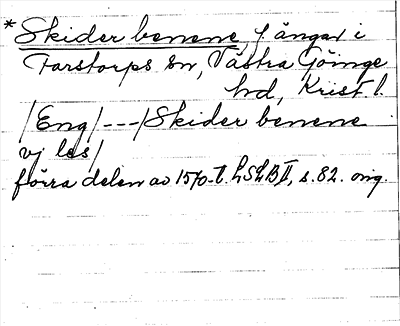 *Skider benene, f ängar i
Farstorps sn, Västra Göinge
hd, Krist l.
/Eng/---/Skider benene
vj les/
förra delen av 1570-t. LSLB II, s. 82. orig.